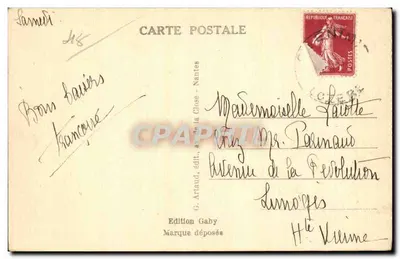 Samedi
CARTE POSTALE
REPUBLIQUE FRANÇAISE
POSTES
Bons baisers
Françoise
G. Artaud, édit., Nantes
CPARAMA
Mademoiselle
chez Mr.
Avenue de la Révolution
Limoges
Hte Vienne
Edition Gaby
Marque déposée